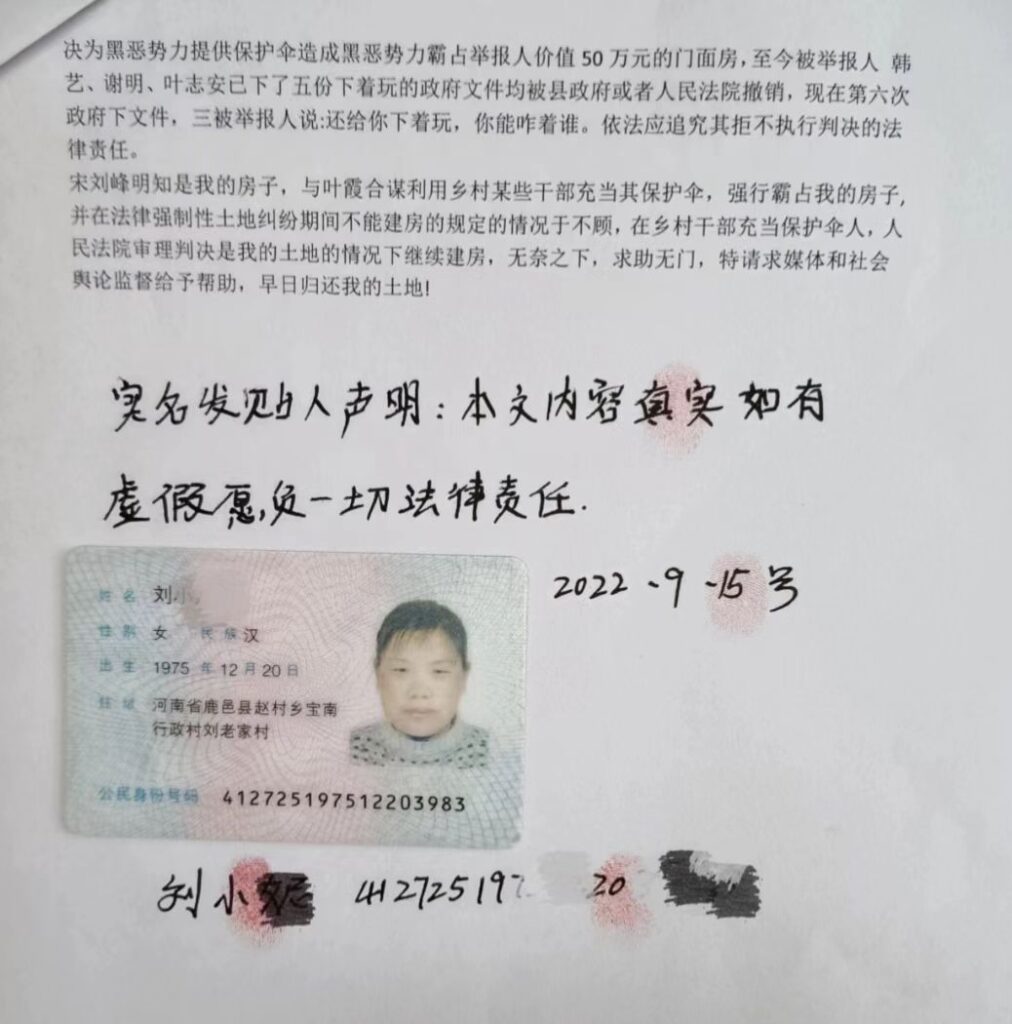 决为黑恶势力提供保护伞造成黑恶势力霸占举报人价值 50 万元的门面房，至今被举报人 韩
艺、谢明、叶志安已下了五份下着玩的政府文件均被县政府或者人民法院撤销，现在第六次
政府下文件，三被举报人说:还给你下着玩，你能咋着谁。依法应追究其拒不执行判决的法
律责任。
宋刘峰明知是我的房子，与叶霞合谋利用乡村某些干部充当其保护伞，强行霸占我的房子,
并在法律强制性土地纠纷期间不能建房的规定的情况于不顾，在乡村干部充当保护伞人，人
民法院审理判决是我的土地的情况下继续建房，无奈之下，求助无门，特请求媒体和社会
舆论监督给予帮助，早日归还我的土地!
实名发贴人声明：本文内容真实如有
虚假愿负一切法律责任.
2022.9.15号
姓名 刘小
性别 女 民族 汉
出生 1975 年 12 月 20 日
住址 河南省鹿邑县赵村乡宝南
行政村刘老家村
公民身份号码 412725197512203983
刘小 412725197 20